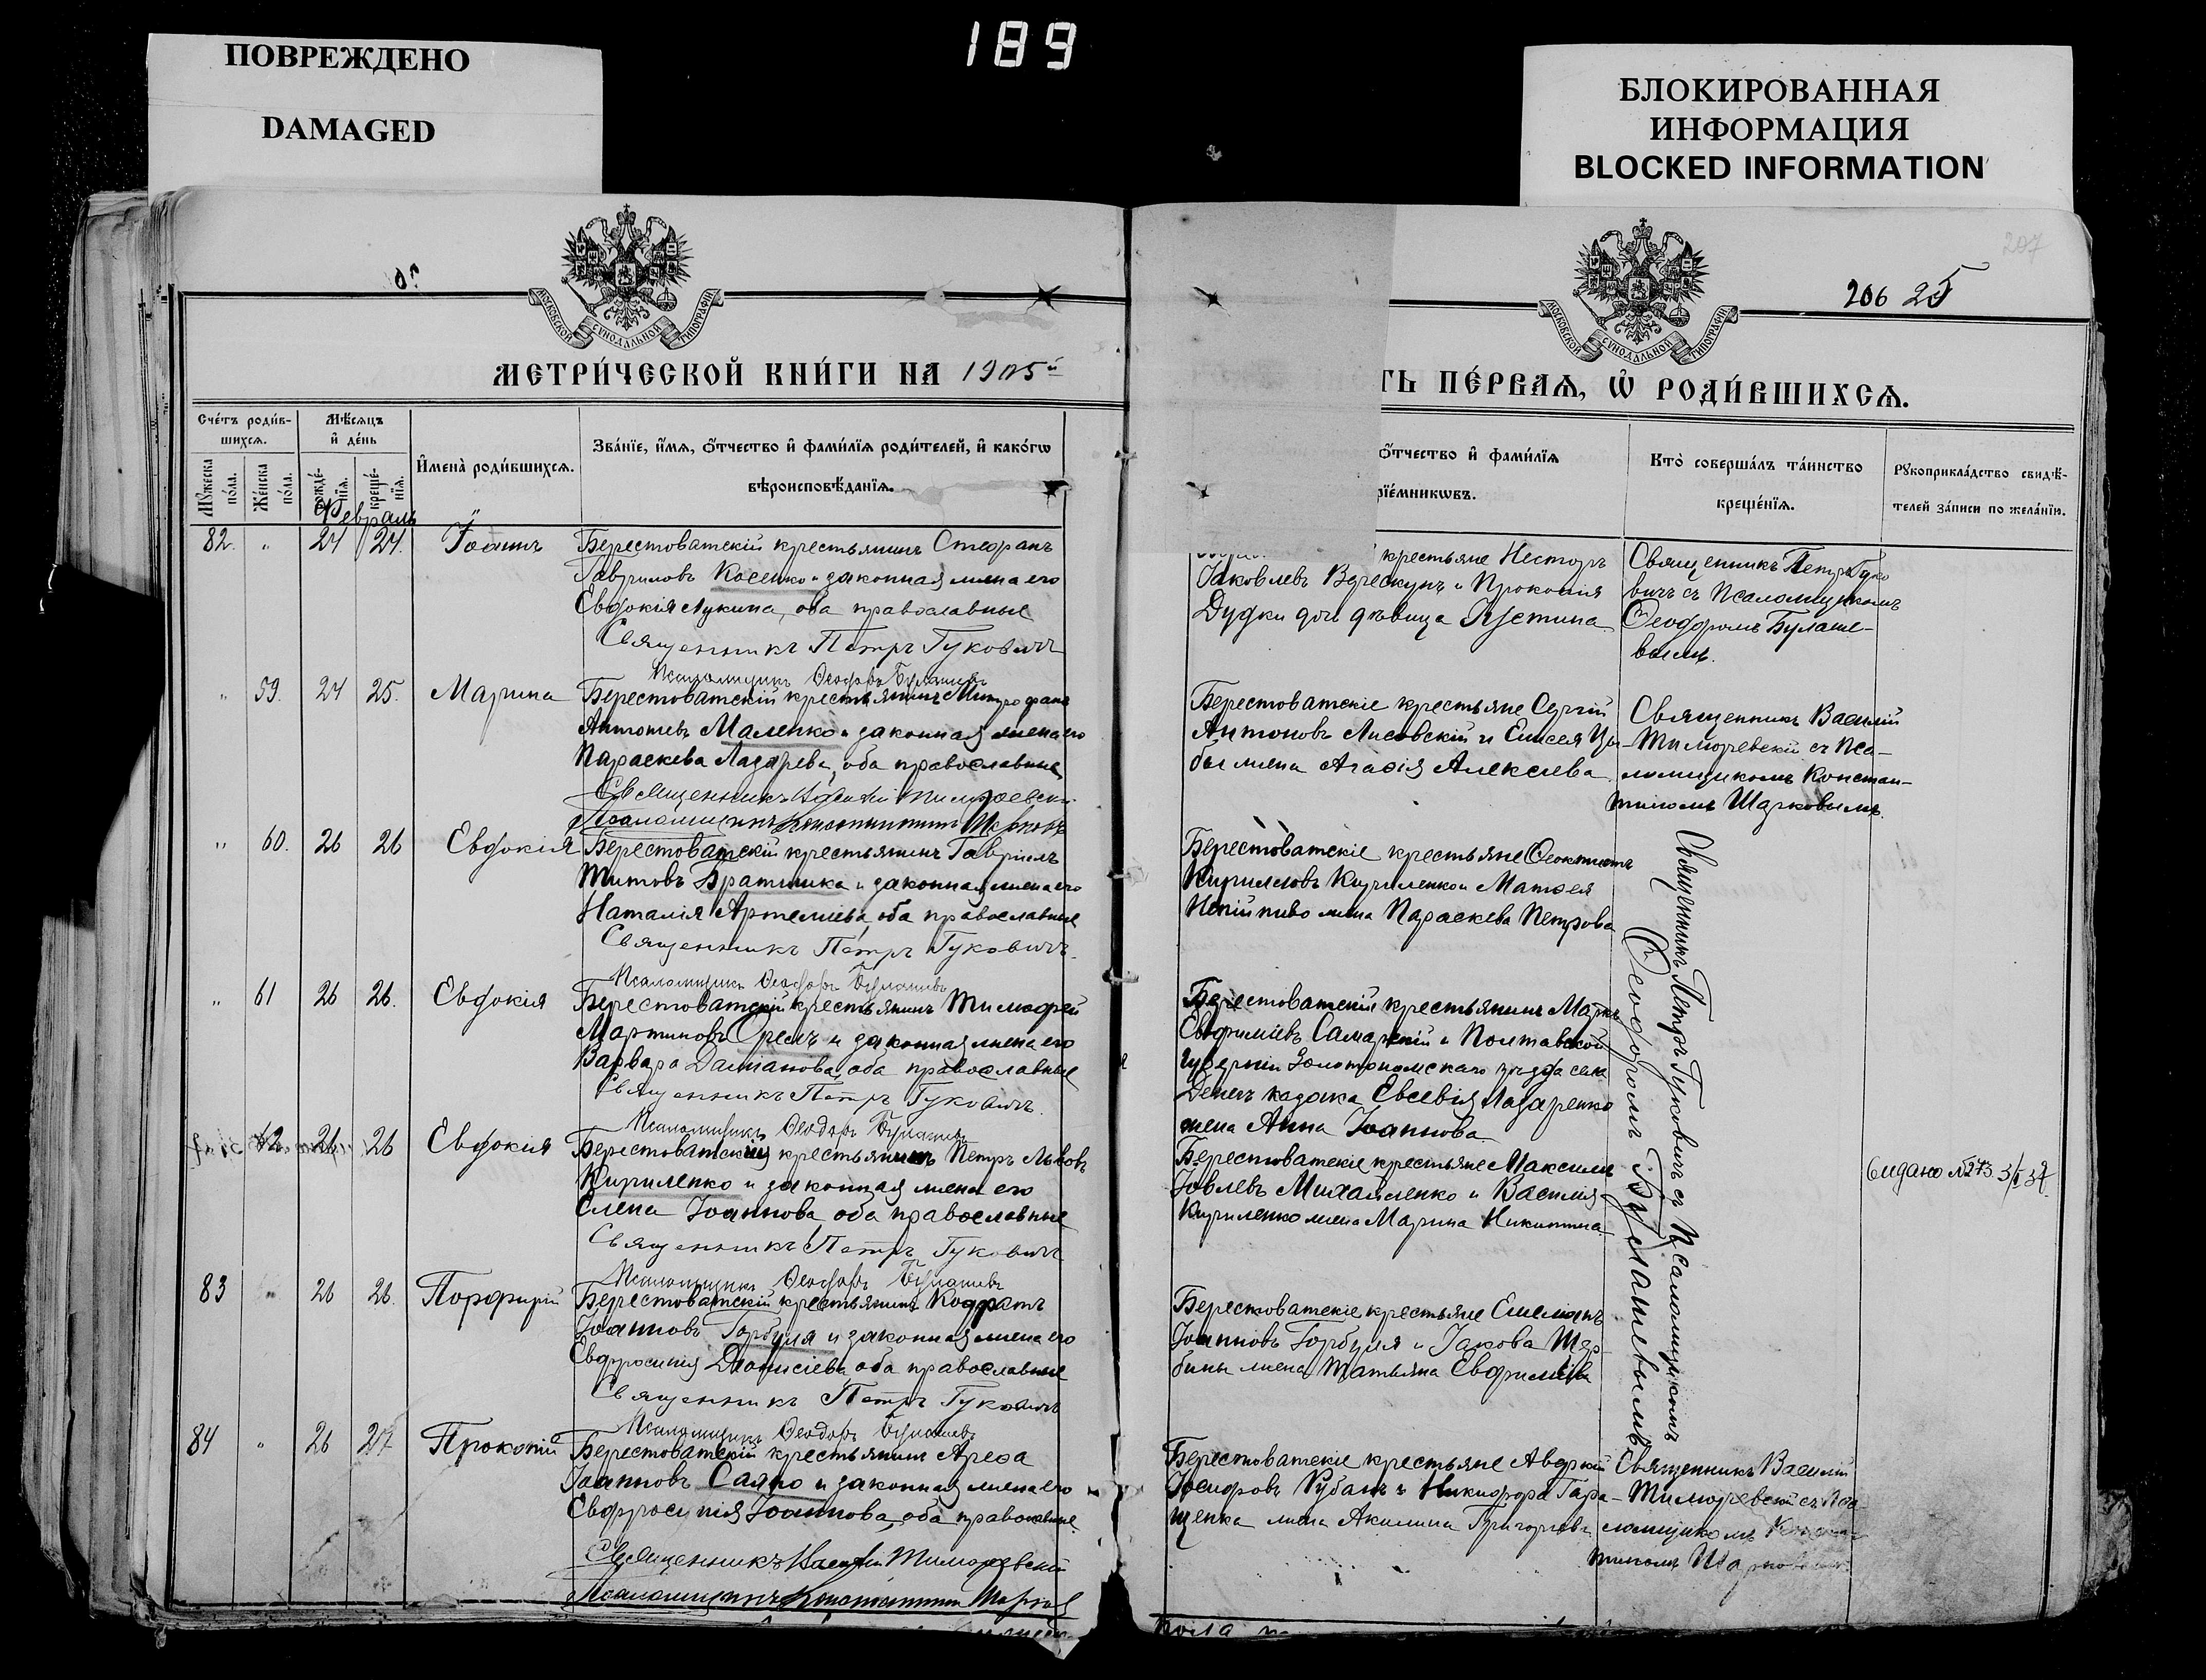 189
ПОВРЕЖДЕНО
DAMAGED
БЛОКИРОВАННАЯ
ИНФОРМАЦИЯ
BLOCKED INFORMATION
207
206 25
МОСКОВСКОЙ СУНОДАЛЬНОЙ ТИПОГРАФІИ
МОСКОВСКОЙ СУНОДАЛЬНОЙ ТИПОГРАФІИ
МЕТРИ́ЧЕСКОЙ КНИ́ГИ НА 1905й
ТЬ ПЕ́РВАѦ, Ѿ РОДИ́ВШИХСѦ.
Сче́тъ роди́в-
шихсѧ.
Мѣ́сѧцъ
и҆ де́нь
Мꙋ́жеска по́ла.
Же́нска по́ла.
рожде́-нїѧ.
креще́-нїѧ.
И҆мена̀ роди́вшихсѧ.
Зва́нїе, и҆́мѧ, ѻ҆́тчество и҆ фами́лїѧ роди́телей, и҆ како́гѡ
вѣроисповѣ́данїѧ.
ѻ҆́тчество и҆ фами́лїѧ
рїе́мникѡвъ.
Кто̀ соверша́лъ та́инство
креще́нїѧ.
Рꙋкоприкла́дство свидѣ́-
телей за́писи по жела́нїю.
Февраль
82. " 24 24. Іоаннъ
Берестоватскій крестьянинъ Стефанъ
Гавриловъ Косенко и законная жена его
Евдокія Лукина, оба православные
Священникъ Петръ Гуковичъ
Псаломщикъ Ѳеодоръ Булашевъ
крестьяне Несторъ
Іаковлевъ Верескунъ и Прокопія
Дудки дочь дѣвица Іустина
Священникъ Петръ Гуко
вичъ съ Псаломщикомъ
Ѳеодоромъ Булаше-
вымъ.
" 59. 24 25. Марина
Берестоватскій крестьянинъ Митрофанъ
Антоніевъ Маленко и законная жена его
Параскева Лазарева, оба православные
Священникъ Василій Тимоѳеевскій
Псаломщикъ Константинъ Шарковъ
Берестоватскіе крестьяне Сергій
Антоновъ Лисовскій и Елисея Цы-
бы жена Агаѳія Алексіева
Священникъ Василій
Тимоѳеевскій съ Пса-
ломщикомъ Констан-
тиномъ Шарковымъ.
" 60. 26 26 Евдокія
Берестоватскій крестьянинъ Гавріилъ
Титовъ Братишка и законная жена его
Наталія Артеміева, оба православные
Священникъ Петръ Гуковичъ.
Псаломщикъ Ѳеодоръ Булашевъ
Берестоватскіе крестьяне Ѳеоктистъ
Кирилловъ Кириленко и Матѳея
Непійпиво жена Параскева Петрова
Священникъ Петръ Гуковичъ съ Псаломщикомъ
Ѳеодоромъ Булашевымъ
" 61 26 26. Евдокія
Берестоватскій крестьянинъ Тимофей
Мартиновъ Орелъ и законная жена его
Варвара Даміанова, оба православные
Священникъ Петръ Гуковичъ.
Псаломщикъ Ѳеодоръ Булашевъ
Берестоватскій крестьянинъ Маркъ
Евфиміевъ Самарскій и Полтавской
губерніи Золотоношскаго уѣзда села
Денегъ казака Евсевія Лазаренко
жена Анна Іоаннова
62 26 26 Евдокія
Берестоватскій крестьянинъ Петръ Львовъ
Кириленко и законная жена его
Елена Іоаннова, оба православные
Священникъ Петръ Гуковичъ
Псаломщикъ Ѳеодоръ Булашевъ
Берестоватскіе крестьяне Максимъ
Іовлевъ Михайленко и Василія
Кириленко жена Марина Никитина
Видано №273 3/I 37.
83 " 26 26. Порфирій
Берестоватскій крестьянинъ Кодратъ
Іоанновъ Горбуля и законная жена его
Евфросинія Діонисіева, оба православные
Священникъ Петръ Гуковичъ
Псаломщикъ Ѳеодоръ Булашевъ
Берестоватскіе крестьяне Емеліанъ
Іоанновъ Горбуля и Іакова Щер-
бины жена Татьяна Евфиміева
84 " 26 27 Прокопій
Берестоватскій крестьянинъ Ареѳа
Іоанновъ Саяпо и законная жена его
Евфросинія Іоаннова, оба православные.
Священникъ Василій Тимоѳеевскій
Псаломщикъ Константинъ Шарковъ
Берестоватскіе крестьяне Авдкій
Іосифовъ Рубанъ и Никифора Гара-
щенка жена Акилина Григорьева
Священникъ Василій
Тимоѳеевскій съ Пса-
ломщикомъ Констан-
тиномъ Шарковымъ